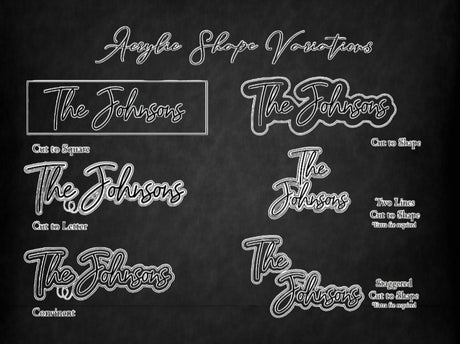 Acrylic Shape Variations
The Johnsons
Cut to Square
The Johnsons
Cut to Shape
The Johnsons
Cut to Letter
The
Johnsons
Two Lines
Cut to Shape
*Extra fee required
The Johnsons
Convinant
The
Johnsons
Staggered
Cut to Shape
*Extra fee required